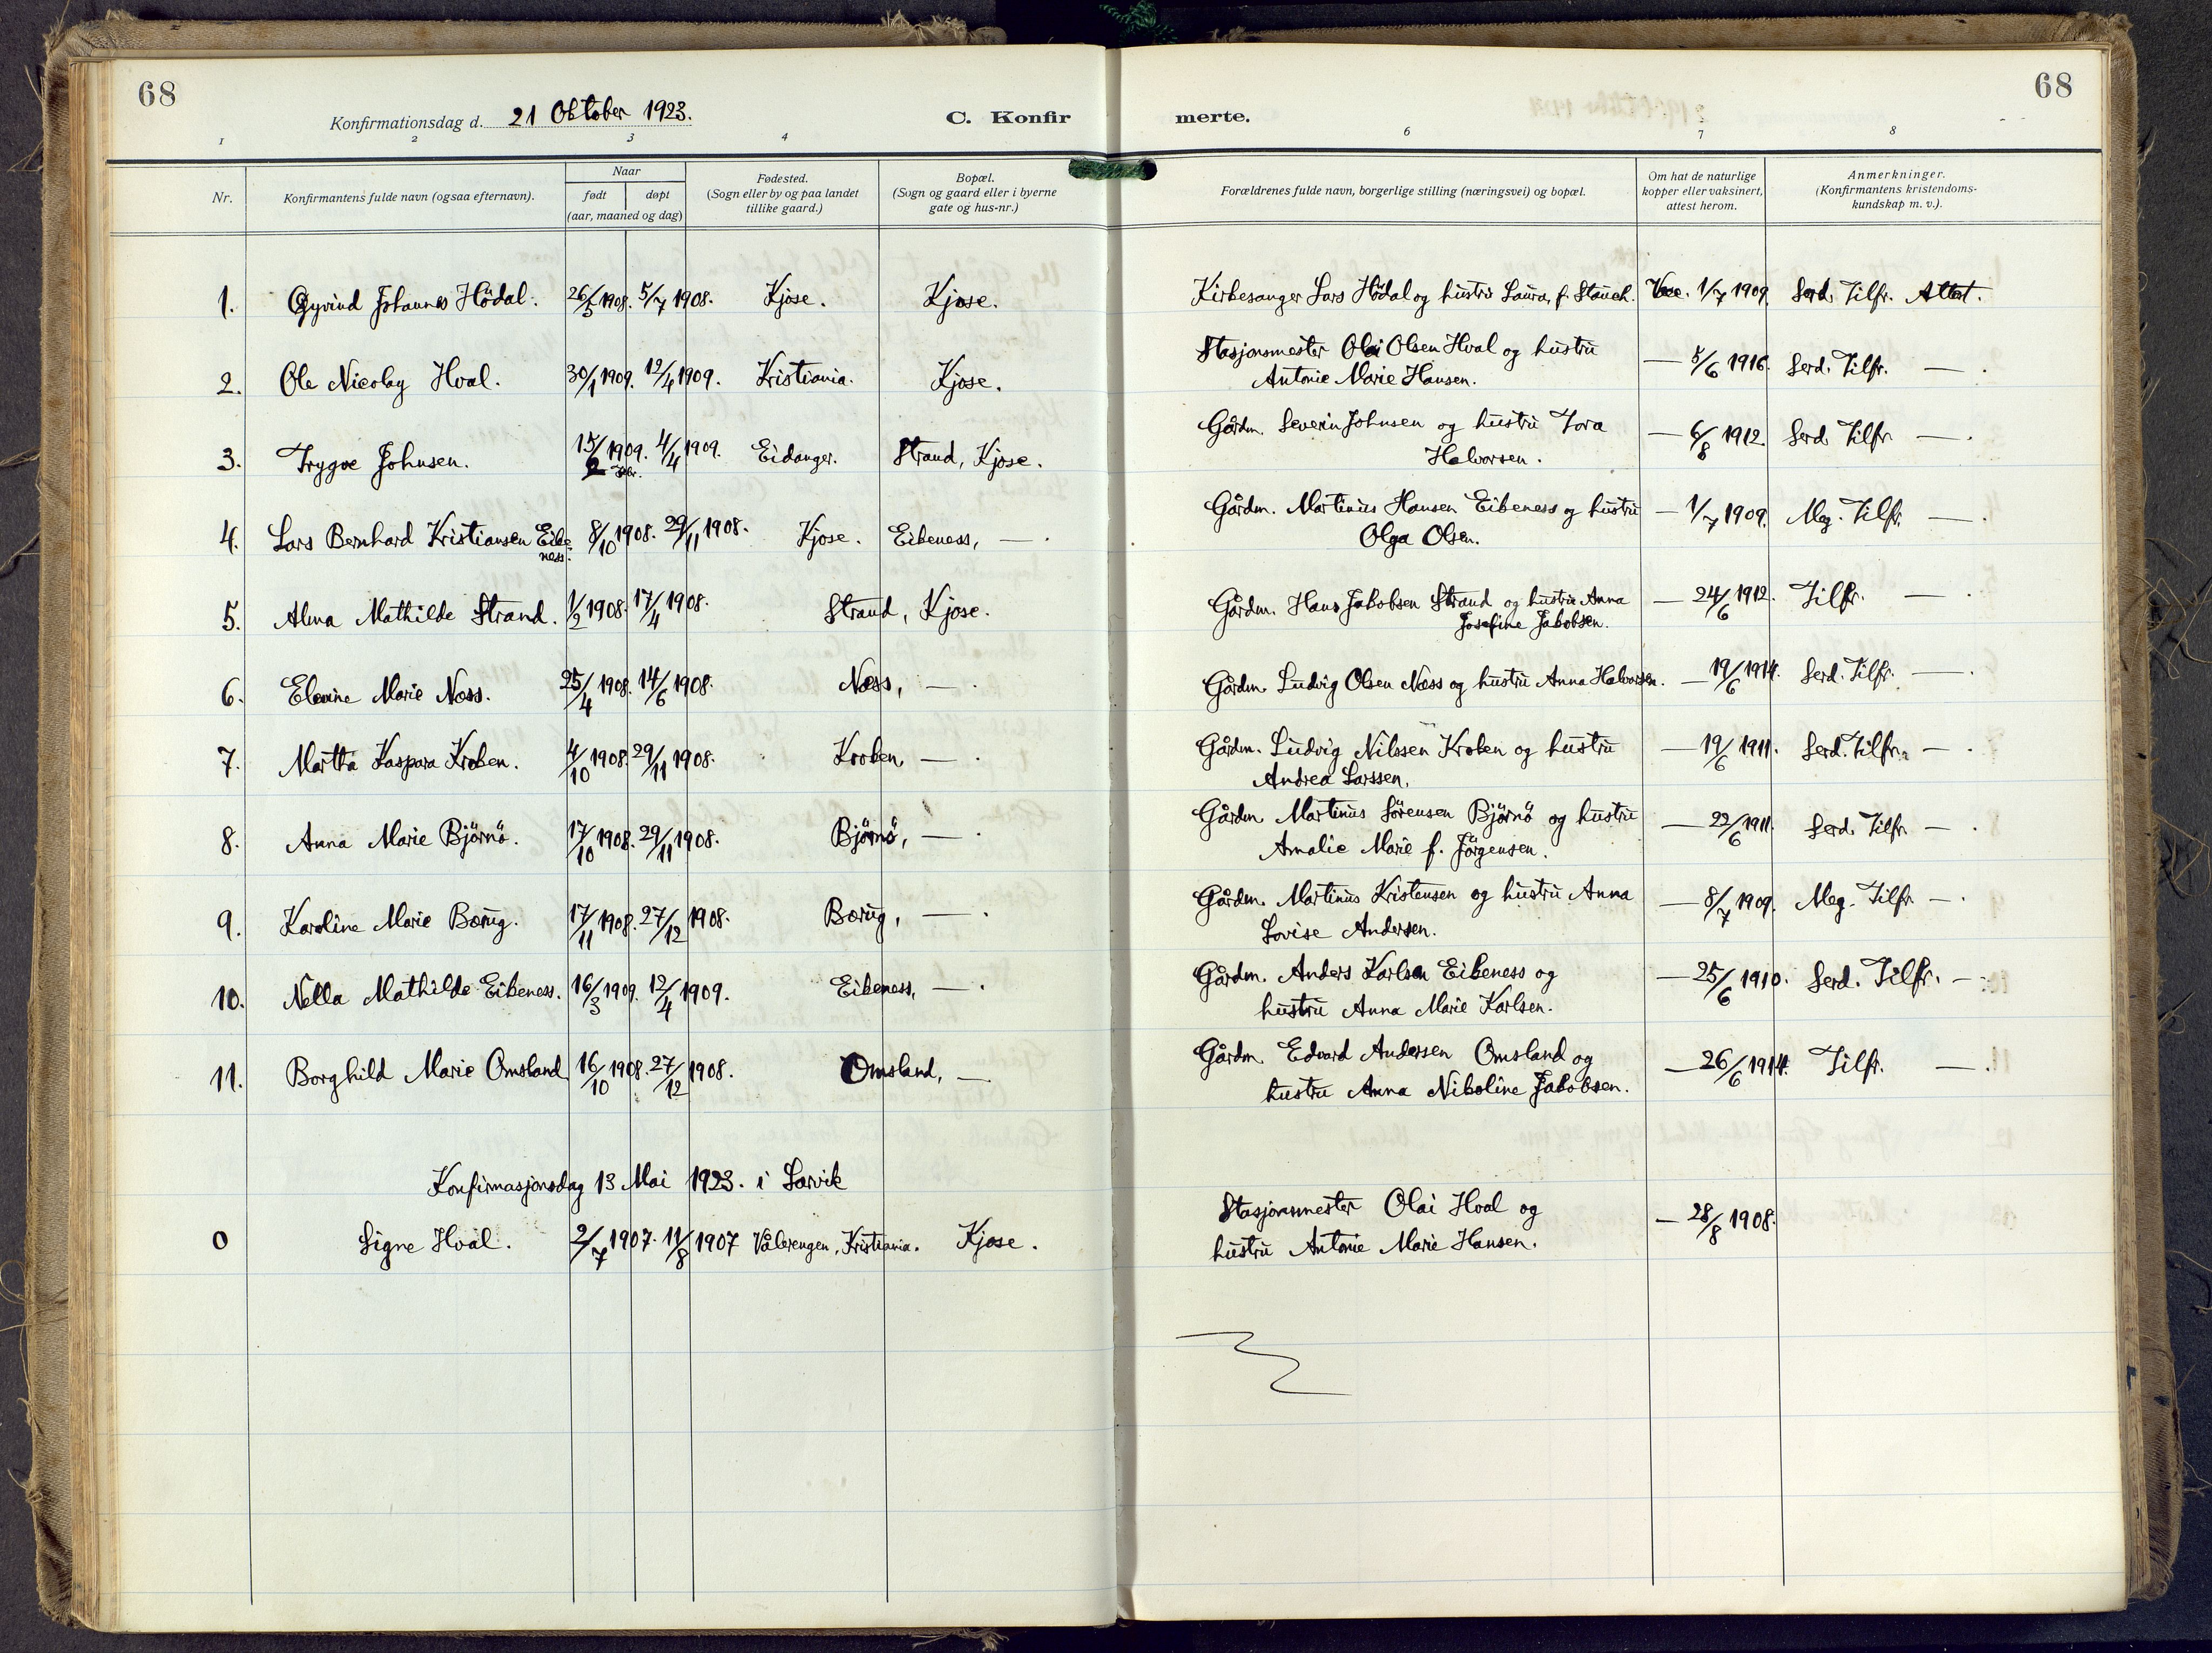 68
Konfirmationsdag d. 21 Oktober 1923.
C. Konfir
merte.
68
1 2 3 4 6 7 8
Nr.
Konfirmantens fulde navn (ogsaa efternavn).
Naar
født døpt
(aar, maaned og dag)
Fødested.
(Sogn eller by og paa landet
tillike gaard.)
Bopæl.
(Sogn og gaard eller i byerne
gate og hus-nr.)
Forældrenes fulde navn, borgerlige stilling (næringsvei) og bopæl.
Om hat de naturlige
kopper eller vaksinert,
attest herom.
Anmerkninger.
(Konfirmantens kristendoms-
kundskap m. v.).
1. Øyvind Johannes Hödal. 26/5 1908. 5/7 1908. Kjose. Kjose. Kirkesanger Lars Hödal og hustru Laura, f. Vac. 1/7 1909. Serd. Tilfr. Attest.
2. Ole Nicolay Hval. 30/1 1909. 12/4 1909. Kristiania. Kjose. Stasjonsmester Olai Olsen Hval og hustru — 5/6 1916. Serd. Tilfr. — .
Antonie Marie Hansen.
3. Trygve Johnsen. 15/2 1909. 4/4 1909. Eidanger. Strand, Kjose. Gårdm. Severin Johnsen og hustru Tora — 6/8 1912. Serd. Tilfr. — .
Febr.
Halvorsen.
4. Lars Bernhard Kristiansen Eike 8/10 1908. 29/11 1908. Kjose. Eikeness, — . Gårdm. Martinus Hansen Eikeness og hustru — 1/7 1909. Meg. Tilfr. — .
ness.
Olga Olsen.
5. Alma Mathilde Strand. 1/2 1908. 17/4 1908. Strand, Kjose. Gårdm. Hans Jakobsen Strand og hustru Anna — 24/6 1912. Tilfr. — .
Josefine Jakobsen.
6. Elevine Marie Næss. 25/4 1908. 14/6 1908. Næss, — . Gårdm. Ludvig Olsen Næss og hustru Anna Halvorsen. — 19/6 1914. Serd. Tilfr. — .
7. Martha Kaspara Kroken. 4/10 1908. 29/11 1908. Kroken, — . Gårdm. Ludvig Nilssen Kroken og hustru — 19/6 1911. Serd. Tilfr. — .
Andrea Larssen.
8. Anna Marie Björnö. 17/10 1908. 29/11 1908. Björnö, — . Gårdm. Martinus Sörensen Björnö og hustru — 22/6 1911. Serd. Tilfr. — .
Amalie Marie f. Jörgensen.
9. Karoline Marie Børug. 17/11 1908. 27/12 1908. Børug, — . Gårdm. Martinus Kristensen og hustru Anna — 8/7 1909. Meg. Tilfr. — .
Lovise Andersen.
10. Nella Mathilde Eikeness. 16/3 1909. 12/4 1909. Eikeness, — . Gårdm. Anders Karlsen Eikeness og — 25/6 1910. Serd. Tilfr. — .
hustru Anna Marie Karlsen.
11. Borghild Marie Omsland 16/10 1908. 27/12 1908. Omsland, — Gårdm. Edvard Andersen Omsland og — 26/6 1914. Tilfr. — .
hustru Anna Nikoline Jakobsen.
Konfirmasjonsdag 13 Mai 1923. i Larvik
0 Signe Hval. 2/7 1907. 11/8 1907 Vålerengen, Kristiania. Kjose. Stasjonsmester Olai Hval og — 28/8 1908.
hustru Antonie Marie Hansen.